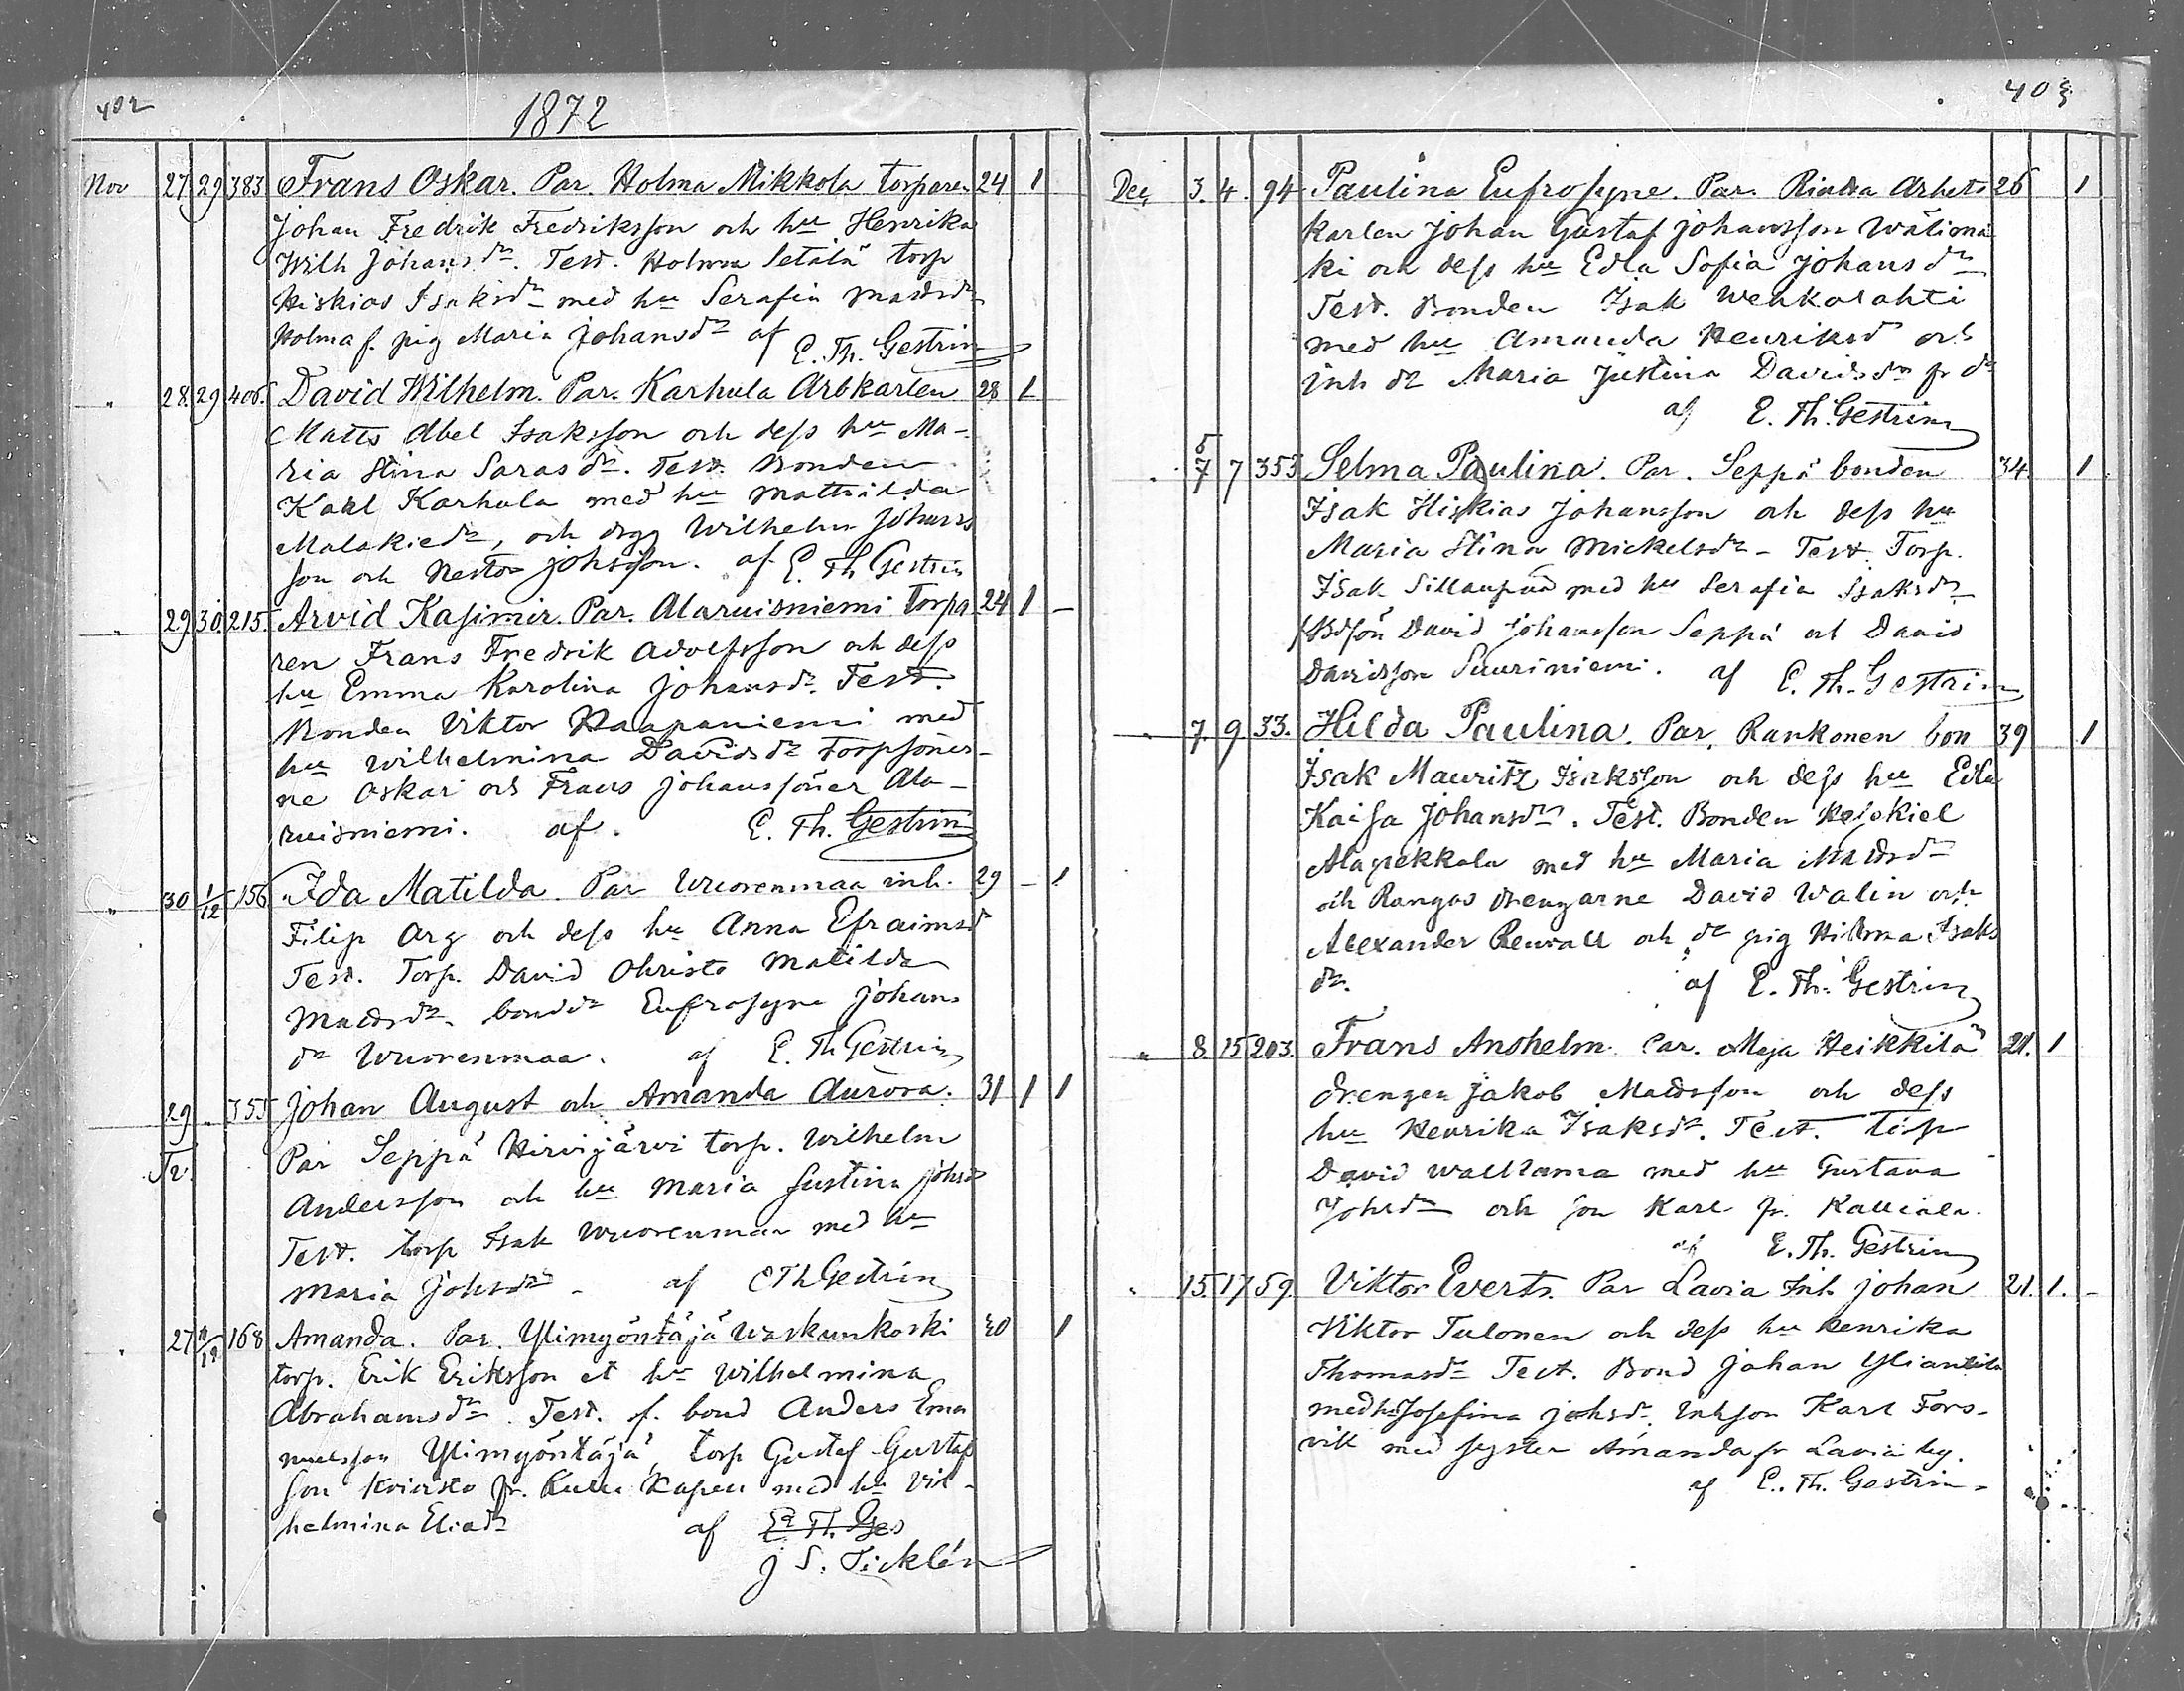 402
1872
Nov 27 29 383 Frans Oskar. Par. Holma Mikkola torparen 24 1
Johan Fredrik Fredriksson och hu Henrika
Wilh Johansdr. Test. Holma Setälä torp
Hiskias Isaksdr med hu Serafia Mattsdr
Holma f. pig Maria Johansdr af E. Th. Gestrin
" 28. 29 406. David Wilhelm. Par. Karhula Arbkarlen 28 1
Matts Abel Isaksson och dess hu Ma-
ria Stina Sarasdr. Test. Bonden
Karl Karhula med hu Mathilda
Malakiedr, och drgg Wilhelm Johans
son och Nestor Johsson. af E. Th Gestrin
" 29 30. 215. Arvid Kasimir. Par. Alaruisniemi torpa 24 1 -
ren Frans Fredrik Adolfsson och dess
hu Emma Karolina Johansdr. Test.
Bonden Viktor Haapaniemi med
hu Wilhelmina Davidsdr Torpsöner-
ne Oskar och Frans Johanssöner Ala-
ruisniemi. af. E. Th. Gestrin
" 30 1/12 156 Ida Matilda. Par Wuorenmaa inh. 29 - 1
Filip Arg och dess hu Anna Efraimsd
Test. Torp. David Ohristo Matilda
Mattsdr. bonddr Eufrosyne Johans
dr Wuorenmaa. af E. Th Gestrin
29 " 355 Johan August och Amanda Aurora. 31 1 1
Tv. Par Seppä Hirvijärvi torp. Wilhelm
Andersson och hu Maria Justina Johsd
Test. torp Isak Wuorenmaa med hu
Maria Johsdr - af E Th Gestrin
" 27 168 Amanda. Par. Ylimyöntäjä Waskunkoski 40 1
torp. Erik Eriksson et hu Wilhelmina
Abrahamsdr. Test. f. bond Anders Ema
nuelsson Ylimyöntäjä, torp Gustaf Gustaf
son Koivisto fr. med hu Vil-
helmina Eliadr af E. Th. Ges
J S. Ticklén
403
Dec 3. 4. 94 Paulina Eufrosyne. Par. Riadna Arbets 26 1
karlen Johan Gustaf Johansson Wälimä
ki och dess hu Edla Sofia Johansdr
Test. Bonden Isak Wehkalahti
med hu Amanda Henriksd och
inh dr Maria Justina Davidsdr fr dr
af E. Th. Gestrin
5
" 7 7 353 Selma Paulina. Par. Seppä bonden 34. 1
Isak Hiskias Johansson och dess hu
Maria Stina Mickelsdr - Test. Torp.
Isak Sillanpää med hu Serafia Isaksdr
Bdsön David Johansson Seppä och David
Davidsson Suuriniemi. af E. Th. Gestrin
" 7. 9 33. Hilda Paulina. Par. Rankonen bon 39 1
Isak Mauritz Isaksson och dess hu Edla
Kaisa Johansdr. Test. Bonden Hesekiel
Alapekkala med hu Maria Mattsdr
och Rangas drengarne David Walin och
Alexander Renvall och dr pig Hilma Isaks
dr. af E. Th. Gestrin
" 8. 15 203. Frans Anshelm. Par. Maja Heikkilä 21. 1
drengen Jakob Mattsson och dess
hu Henrika Isaksdr. Test. torp
David Walltama med hu Gustava
Johsdr och son Karl fr. Kalliala.
af E. Th. Gestrin
" 15. 17 59. Viktor Everts. Par Lavia Inh. Johan 21. 1. -
Viktor Tulonen och dess hu Henrika
Thomasdr Test. Bond Johan Yliantila
med hu Josefina Johsdr, Inhson Karl Fors-
vik med syster Amanda fr Lavia by.
af E. Th. Gestrin.